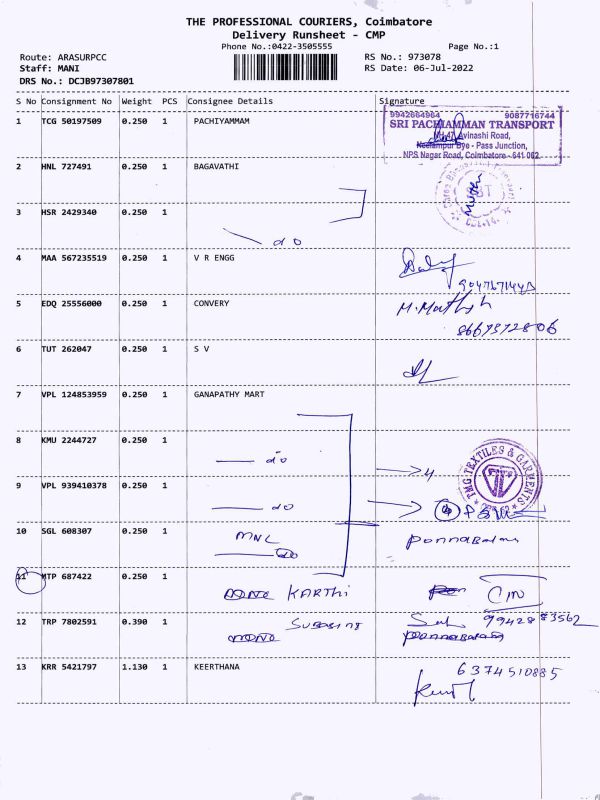 THE PROFESSIONAL COURIERS, Coimbatore
Delivery Runsheet - CMP
Phone No.:0422-3505555
Page No.:1
Route: ARASURPCC
RS No.: 973078
Staff: MANI
RS Date: 06-Jul-2022
DRS No.: DCJB97307801
S No Consignment No Weight PCS Consignee Details Signature
1 TCG 50197509 0.250 1 PACHIYAMMAM
9942664964 9087716744
SRI PACHIAMMAN TRANSPORT
Avinashi Road,
Neelampur Bye - Pass Junction,
NPS Nagar Road, Coimbatore - 641 062.
2 HNL 727491 0.250 1 BAGAVATHI
3 HSR 2429340 0.250 1
do
4 MAA 567235519 0.250 1 V R ENGG
5 EDQ 25556000 0.250 1 CONVERY
8667372806
6 TUT 262047 0.250 1 S V
7 VPL 124853959 0.250 1 GANAPATHY MART
8 KMU 2244727 0.250 1
do
4
TMG TEXTILES & GARMENTS
9 VPL 939410378 0.250 1
do
10 SGL 608307 0.250 1 MNL
do
11 MTP 687422 0.250 1 KARTHi
12 TRP 7802591 0.390 1
13 KRR 5421797 1.130 1 KEERTHANA
6374510885